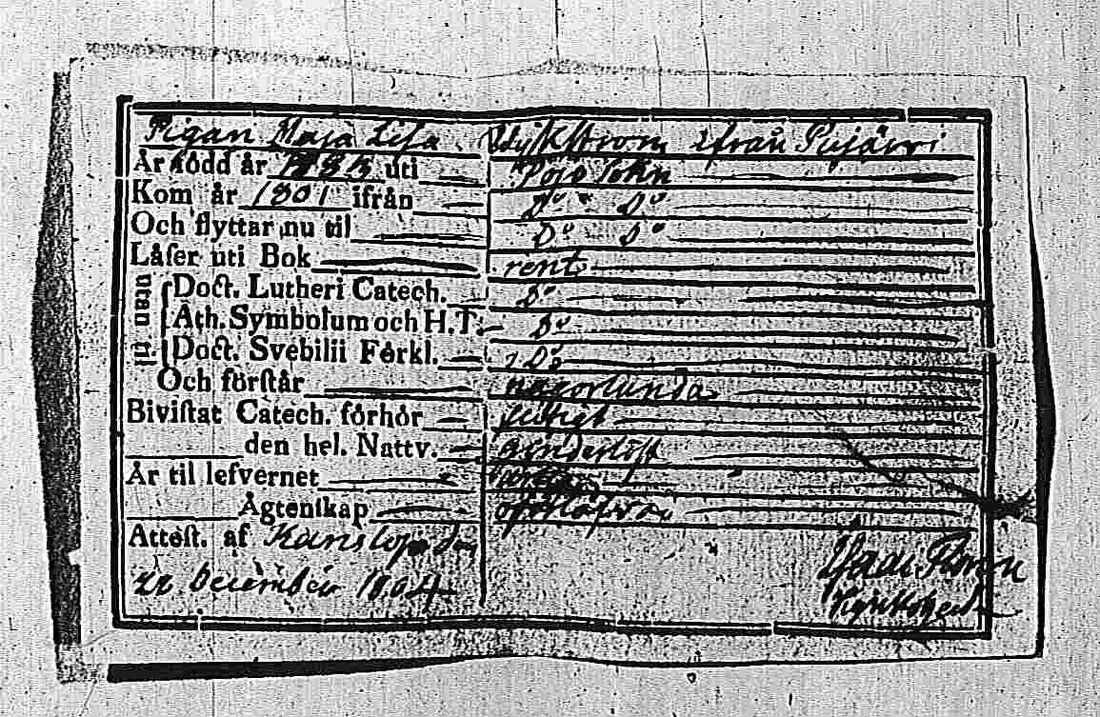 Pigan Maja Lisa ifrån Pojärvi
Är född år uti Pojo Sokn
Kom år 1801 ifrån D° D°
Och flyttar nu til D° D°
Läser uti Bok rent
utan til
Doct. Lutheri Catech. D°
Ath. Symbolum och H.T. D°
Doct. Svebilii Förkl. D°
Och förstår någorlunda
Bivistat Catech. förhör flitigt
den hel. Nattv.
Är til lefvernet
Ägtenskap
Attest. af Karislojo den
22 December 1804